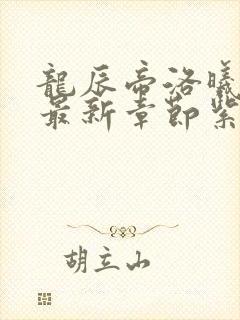 龍辰帝洛曦
最新章節紫
胡立山